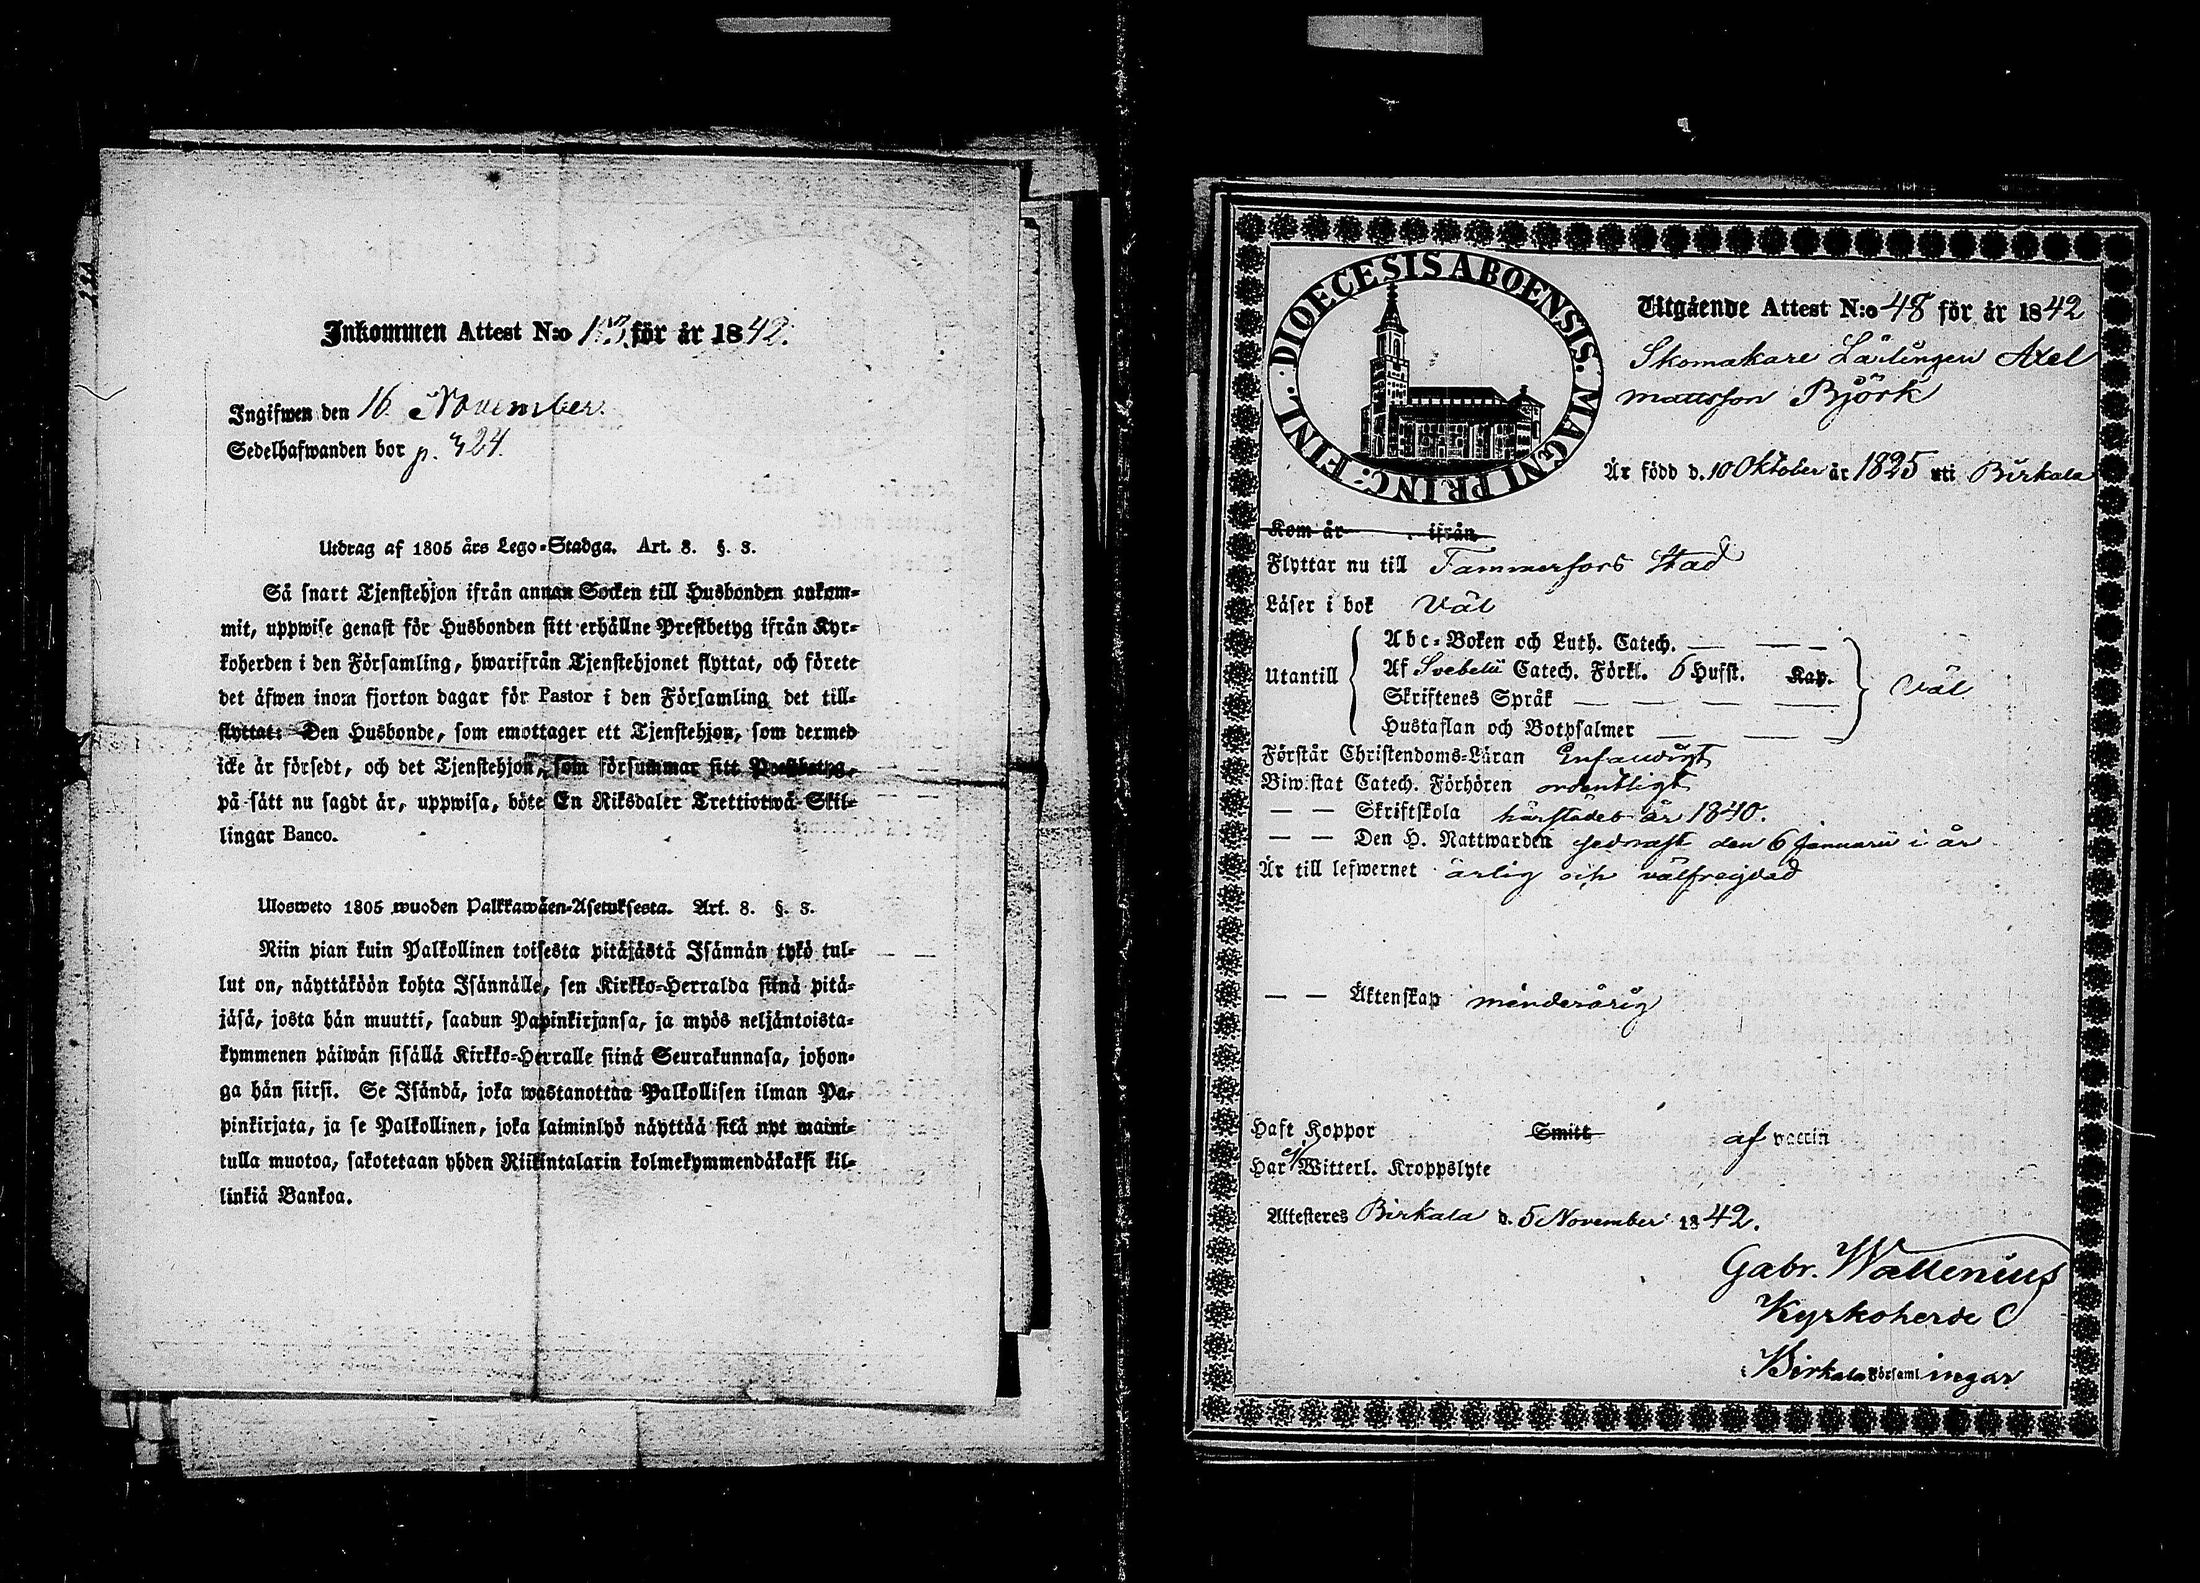 Inkommen Attest N:o 113 för år 1842.
Ingifwen den 16 November.
Sedelhafwanden bor p. 324.
Utdrag af 1805 års Lego-Stadga. Art. 8. §. 3.
Så snart Tjenstehjon ifrån annan Socken till Husbonden ankom-
mit, uppwise genast för Husbonden sitt erhållne Prestbetyg ifrån Kyr-
koherden i den Församling, hwarifrån Tjenstehjonet flyttat, och förete
det äfwen inom fjorton dagar för Pastor i den Församling det till-
flyttat: Den Husbonde, som emottager ett Tjenstehjon, som dermed
icke är försedt, och det Tjenstehjon, som försummar sitt Prestbetyg,
på sätt nu sagdt är, uppwisa, böte En Riksdaler Trettiotwå Skil-
lingar Banco.
Ulosweto 1805 wuoden Palkkawäen-Asetuksesta. Art. 8. §. 3.
Niin pian kuin Palkollinen toisesta pitäjästä Isännän tykö tul-
lut on, näyttäköön kohta Isännälle, sen Kirkko-Herralda siinä pitä-
jäsä, josta hän muutti, saadun Papinkirjansa, ja myös neljäntoista-
kymmenen päiwän sisällä Kirkko-Herralle siinä Seurakunnasa, johon-
ga hän siirsi. Se Isändä, joka wastanottaa Palkollisen ilman Pa-
pinkirjata, ja se Palkollinen, joka laiminlyö näyttää sitä nyt maini-
tulla muotoa, sakotetaan yhden Riikintalarin kolmekymmendäkaksi kil-
linkiä Bankoa.
DIOECESIS ABOENSIS. MAGNI PRINC: FINL.
Utgående Attest N:o 48 för år 1842
Skomakare Lärlingen Axel
Mattsson Björk
Är född d. 10 Oktober år 1825 uti Birkala
Kom år ifrån
Flyttar nu till Tammerfors Stad
Läser i bok Väl
Utantill
Abc-Boken och Luth. Catech.
Af Svebelii Catech. Förkl. 6 Hufst. Kap.
Skriftenes Språk
Hustaflan och Botpsalmer
Väl
Förstår Christendoms-Läran Enfaldigt
Biwistat Catech. Förhören ordentligt
— — Skriftskola härstädes år 1840.
— — Den H. Nattwarden sednast den 6 Januarii i år
Är till lefwernet ärlig och välfrägdad
— — Äktenskap minderårig
Haft Koppor Smitt af vaccin
Har Witterl. Kroppslyte
Attesteres Birkala d. 5 November 1842.
Gabr. Wallenius
Kyrkoherde
i Birkala Församlingar